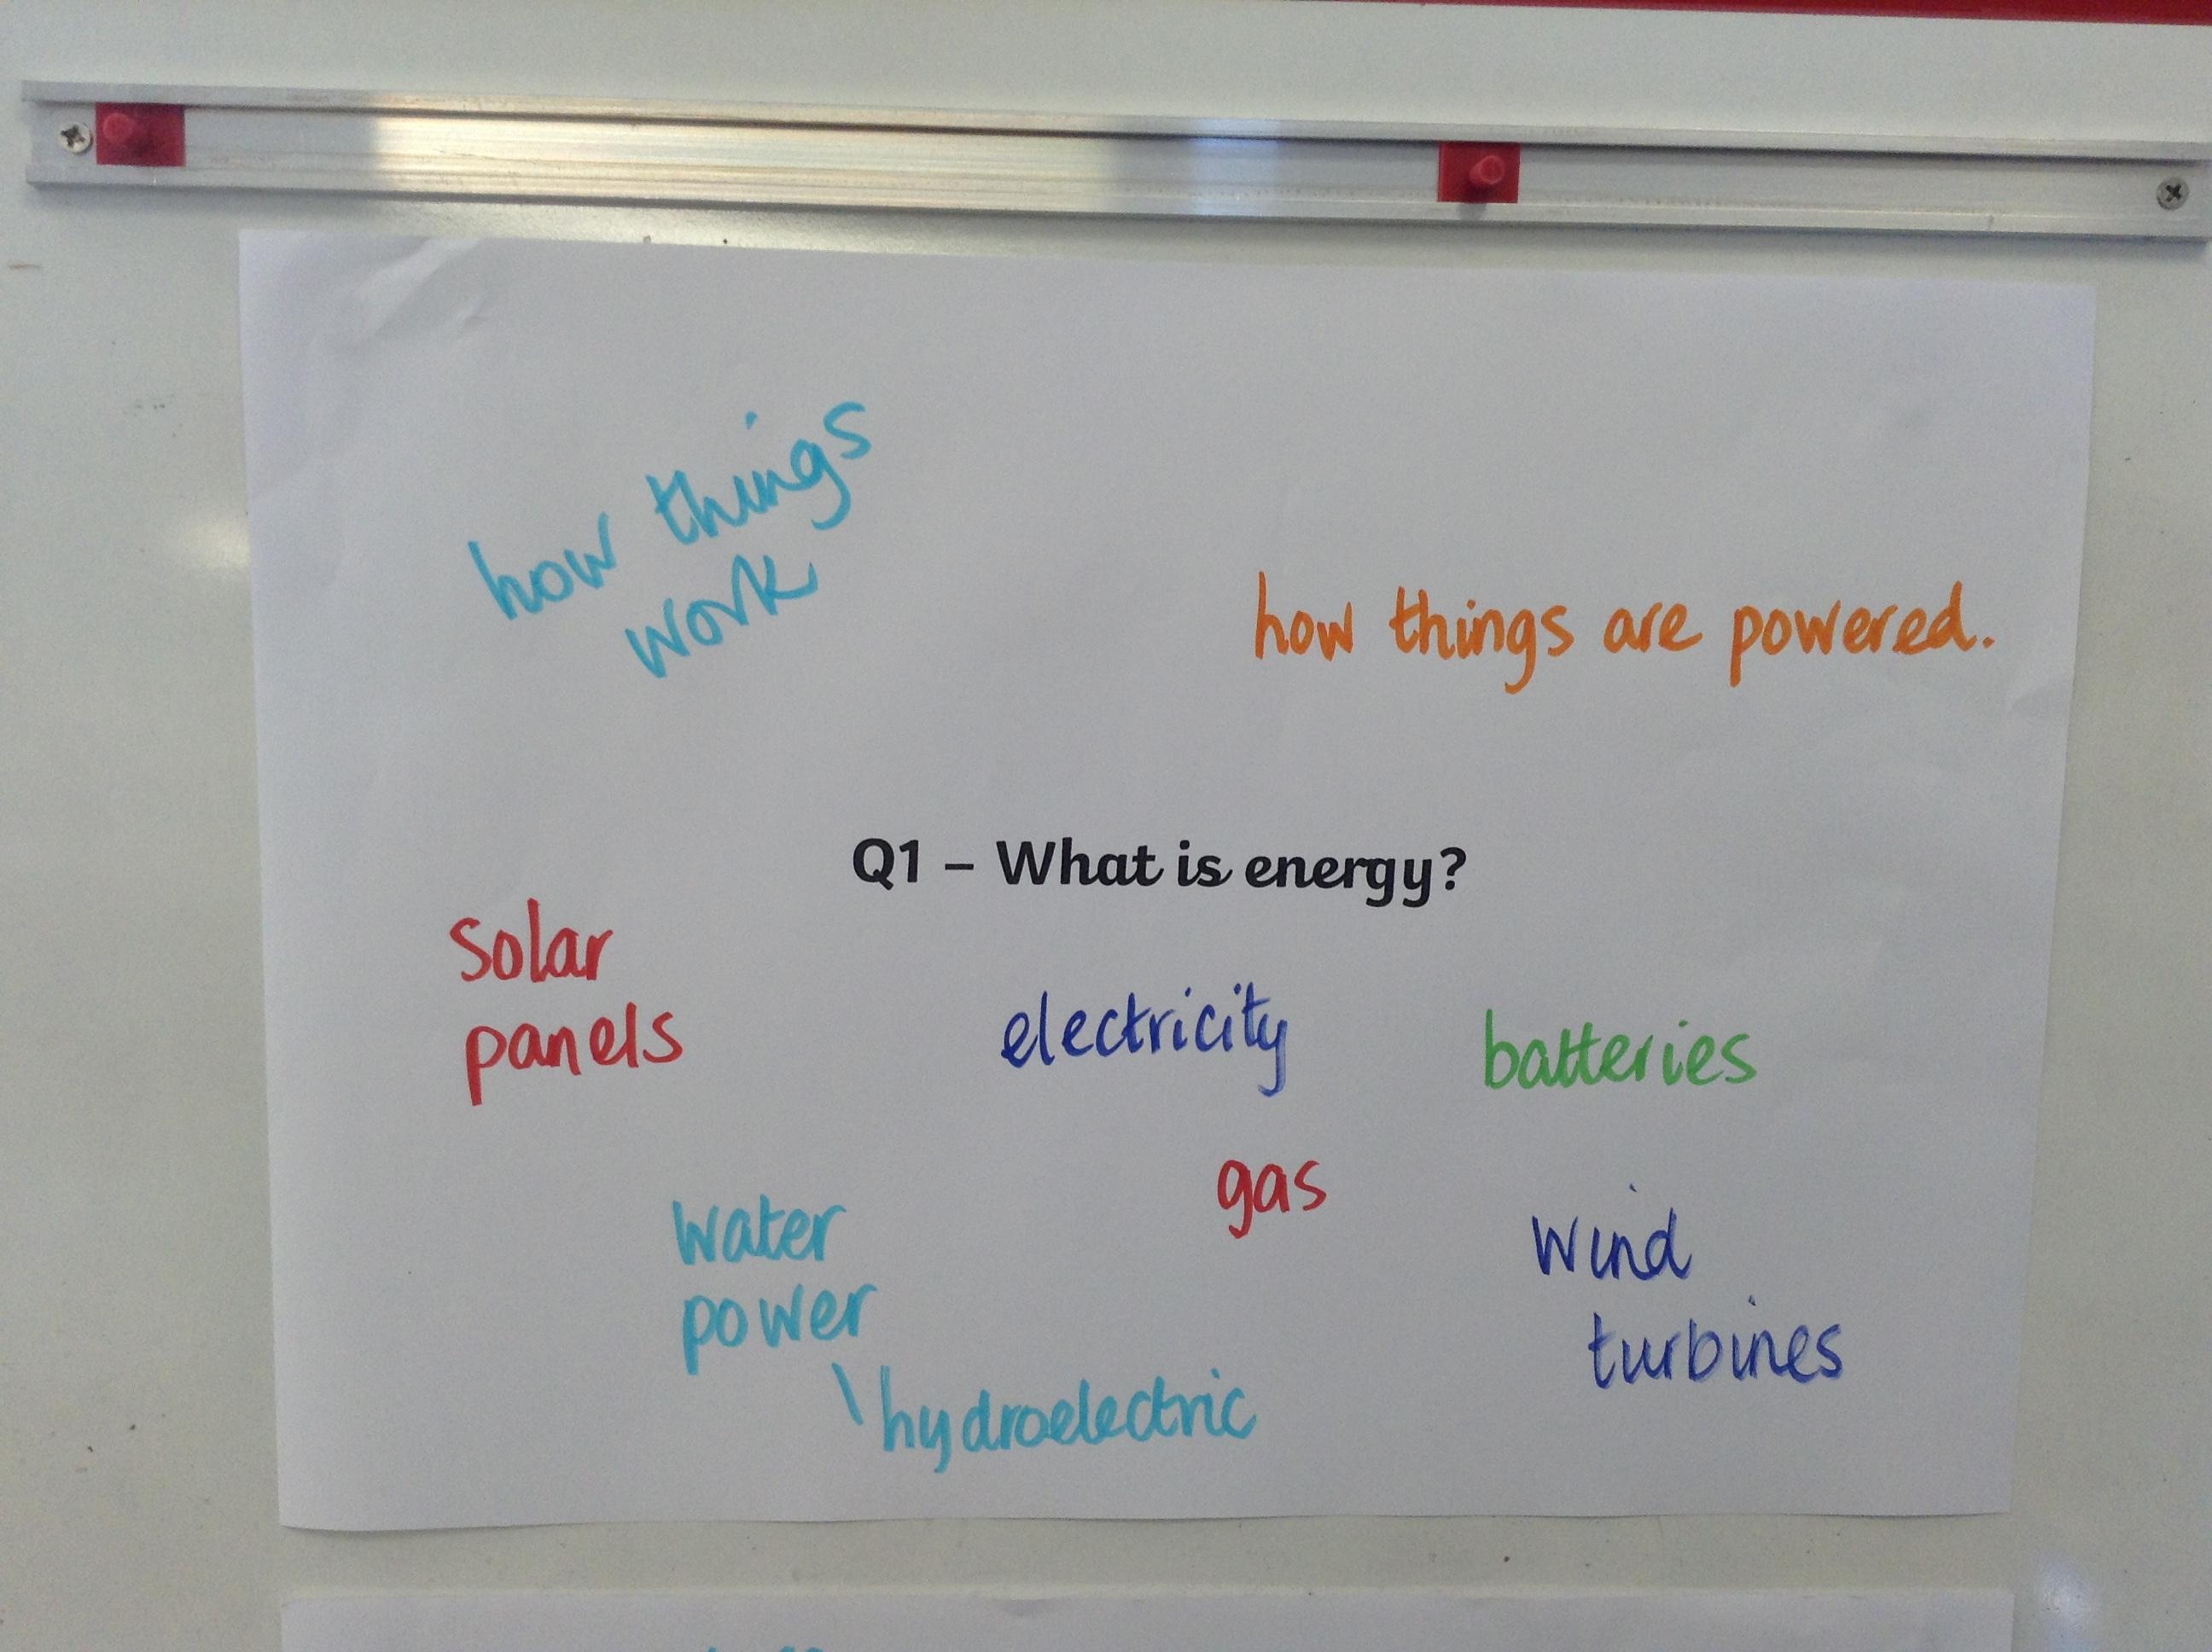 how things
work
how things are powered.
Q1 – What is energy?
solar
panels
electricity
batteries
gas
water
power
hydroelectric
wind
turbines